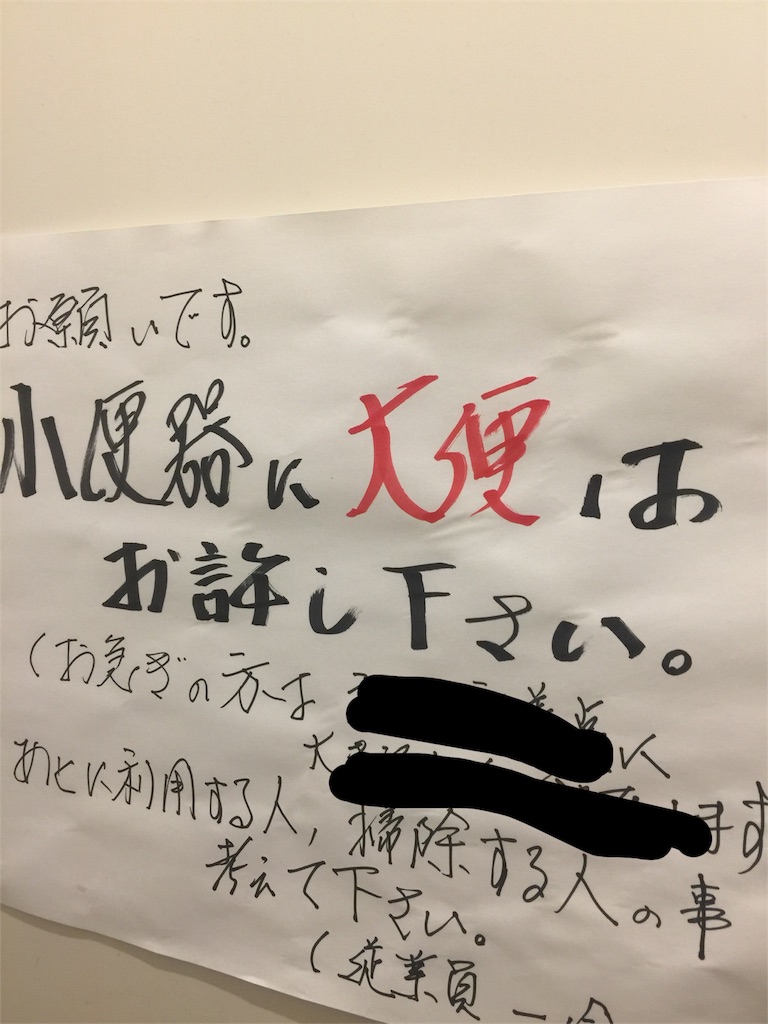 お願いです。
小便器に大便は
お許し下さい。
(お急ぎの方は
に
ます
あとに利用する人、掃除する人の事
考えて下さい。
(従業員一同